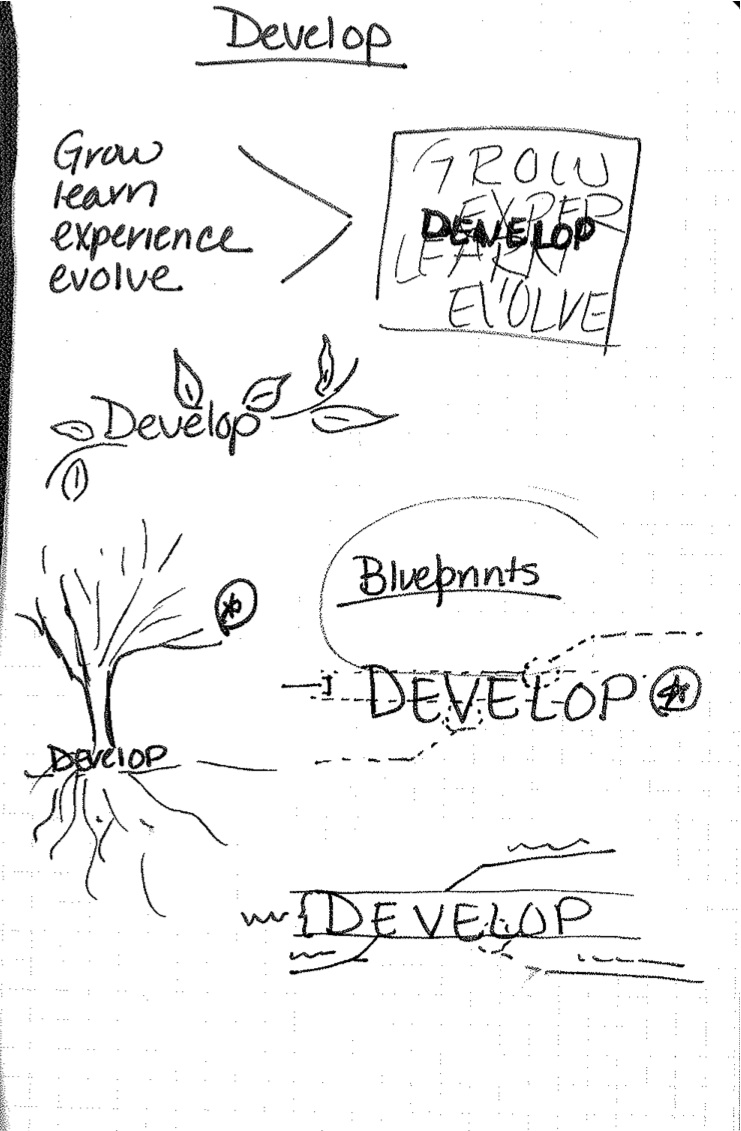 Develop
Grow
learn
experience
evolve
GROW
EXPER
DEVELOP
LEARN
EVOLVE
Develop
Blueprints
DEVELOP
DEVELOP
DEVELOP